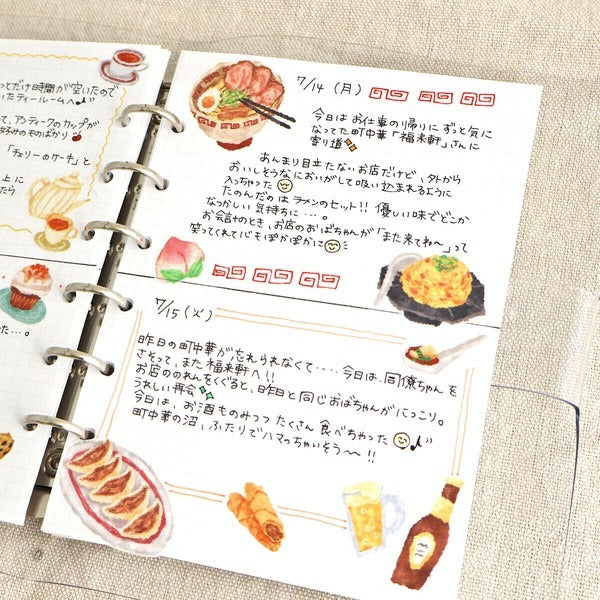 っとだけ時間が空いたので
いたティールームへ♪
って、アンティークのカップが
好みのものばかり
「チェリーのケーキ」と
上に
たら
た…。
7/14 (月)
今日は お仕事の帰りに ずっと気に
なってた 町中華「福来軒」さんに
寄り道
あんまり目立たないお店だけど、外から
おいしそうなにおいがして吸い込まれるように
入っちゃった
たのんだのは ラーメンのセット!! 優しい味でどこか
なつかしい 気持ちに…。
お会計のとき、お店のおばちゃんが「また来てね〜」って
笑ってくれて心もぽかぽかに
7/15 (火)
昨日の町中華が忘れられなくて‥‥今日は、同僚ちゃんを
さそって、また 福来軒へ!!
お店ののれんをくぐると、昨日と同じおばちゃんがにっこり。
うれしい再会
今日は、お酒ものみつつ たくさん 食べちゃった♪
町中華の沼、ふたりでハマっちゃいそう〜!!